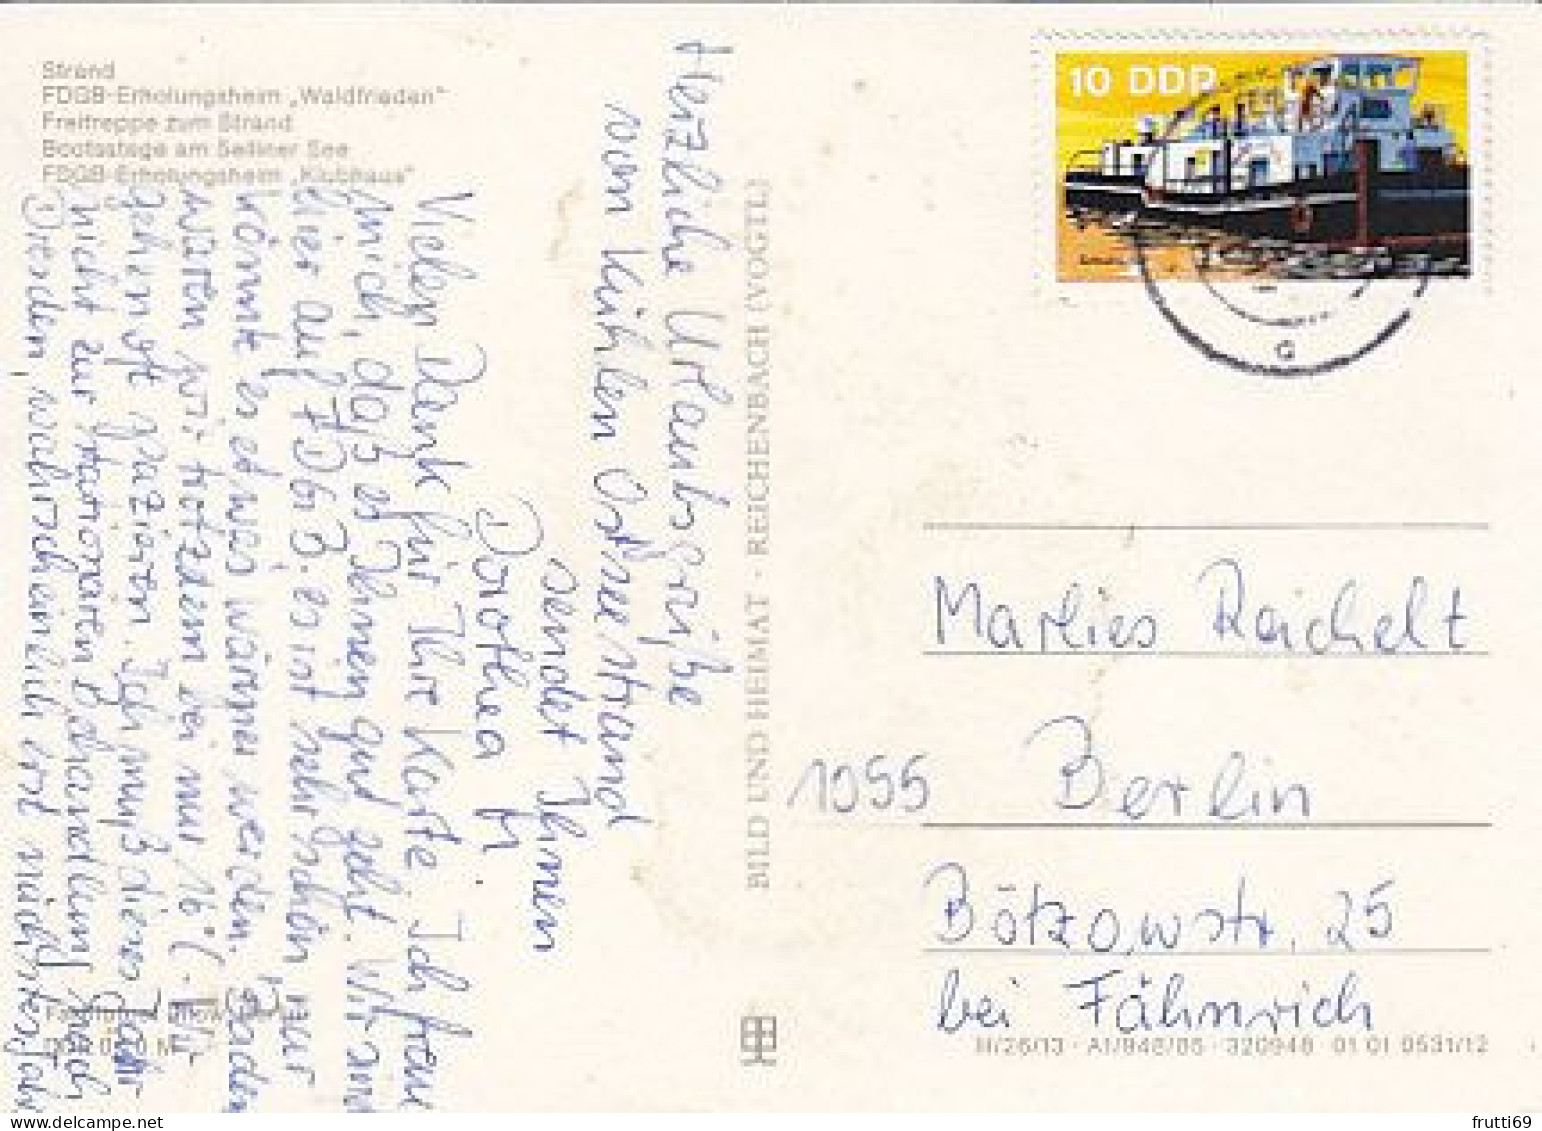 Strand
FDGB-Erholungsheim „Waldfrieden“
Freitreppe zum Strand
Bootsstege am Selliner See
FDGB-Erholungsheim „Klubhaus“
10 DDR
Herzliche Urlaubsgrüße
vom kühlen Ostseestrand
sendet Ihnen
Dorothea H.
Vielen Dank für Ihre Karte. Ich freue
mich, daß es Ihnen gut geht. Wir sind
hier auf FDGB. es ist sehr schön, nur
könnte es etwas wärmer werden. Baden
waren wir trotzdem bei nur 16°C. Wir
gehen oft spazieren. Ich muß dieses Jahr
nicht zur stationären Behandlung nach
Dresden, wahrscheinlich erst nächstes Jahr
BILD UND HEIMAT · REICHENBACH (VOGTL)
Marlies Reichelt
1055 Berlin
Bötzowstr. 25
bei Fähnrich
III/26/13 · A1/948/85 · 320948 01 01 0531/12
frutti69